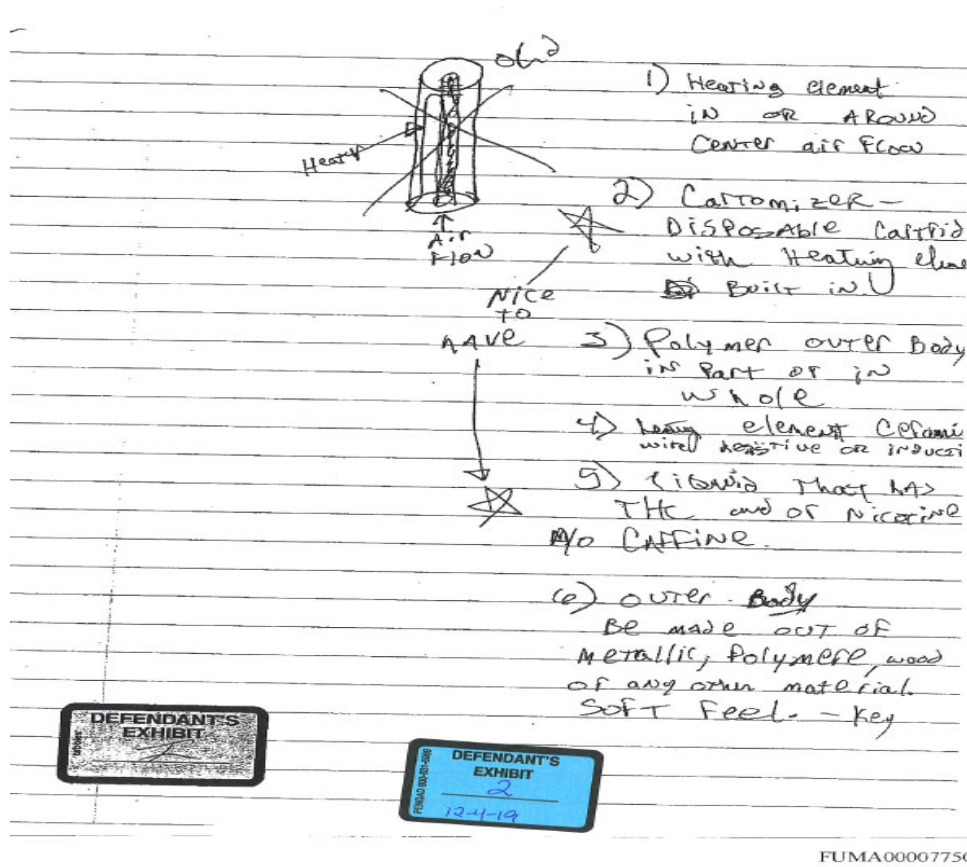 Old
Heat
Air
Flow
Nice
TO
HAVE
1) Heating element
IN OR AROUND
Center air Flow
2) Cartomizer -
Disposable Cartrid
with Heating eleme
Built in.
3) Polymer outer Body
in Part or in
whole
4) heating element Cerami
with resistive or inducti
5) Liquid That has
THC and or Nicotine
A/O CAFFINE.
6) Outer Body
Be made out of
Metallic, Polymere, wood
or any other material.
SOFT Feel. - Key
DEFENDANT'S
EXHIBIT
DEFENDANT'S
EXHIBIT
2
12-4-19
PENGAD 800-631-6989
FUMA00007750